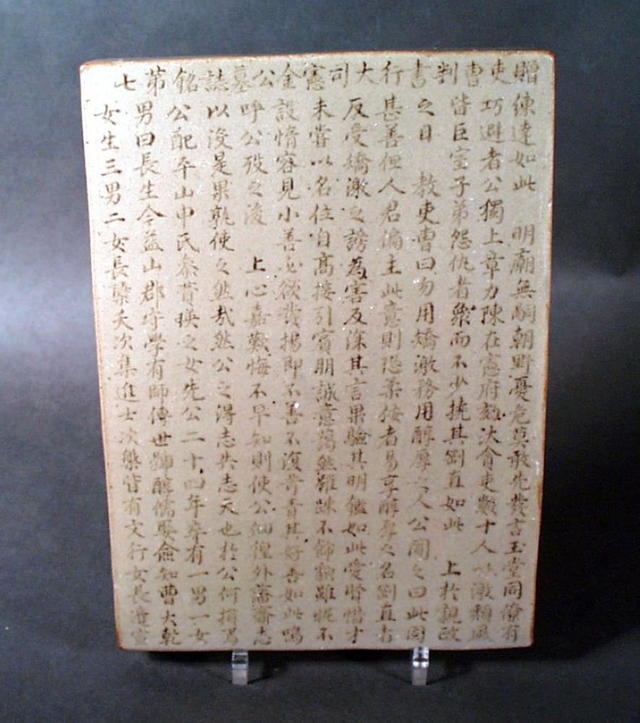 贈吏曹判書行大司憲金公墓誌銘第七
陳達如此 明廟無嗣朝野憂危莫敢先發言玉堂同僚有
巧避者公獨上章力陳在憲府劾汰會吏數十人以激頹風
皆巨室子弟怨仇者衆而不少撓其剛直如此 上於親政
之日 教吏曹曰勿用矯激務用醇厚之人公聞之曰此固
甚善但人君偏主此意則隱柔佞者易享醇厚之名剛直者
反受矯激之謗為害反深其言果驗其明鑑如此愛賢惜才
未嘗以名位自高接引賓朋誠意藹然雖踈不飾雖昵不
設惰容見小善必欲揚即不善不復責其好如此嗚
呼公歿之後 上心嘉歎悔不早知則使公外齎志
以沒是果孰使之然哉然公之得志失志天也於公何損焉
公配平山申氏參贊瑛之女先公二十四年卒有一男一女
男曰長生今益山郡守學有師傳世歸醇儒娶僉知曹大乾
女生三男二女長夭次集進士次槃皆有文行女長適宣